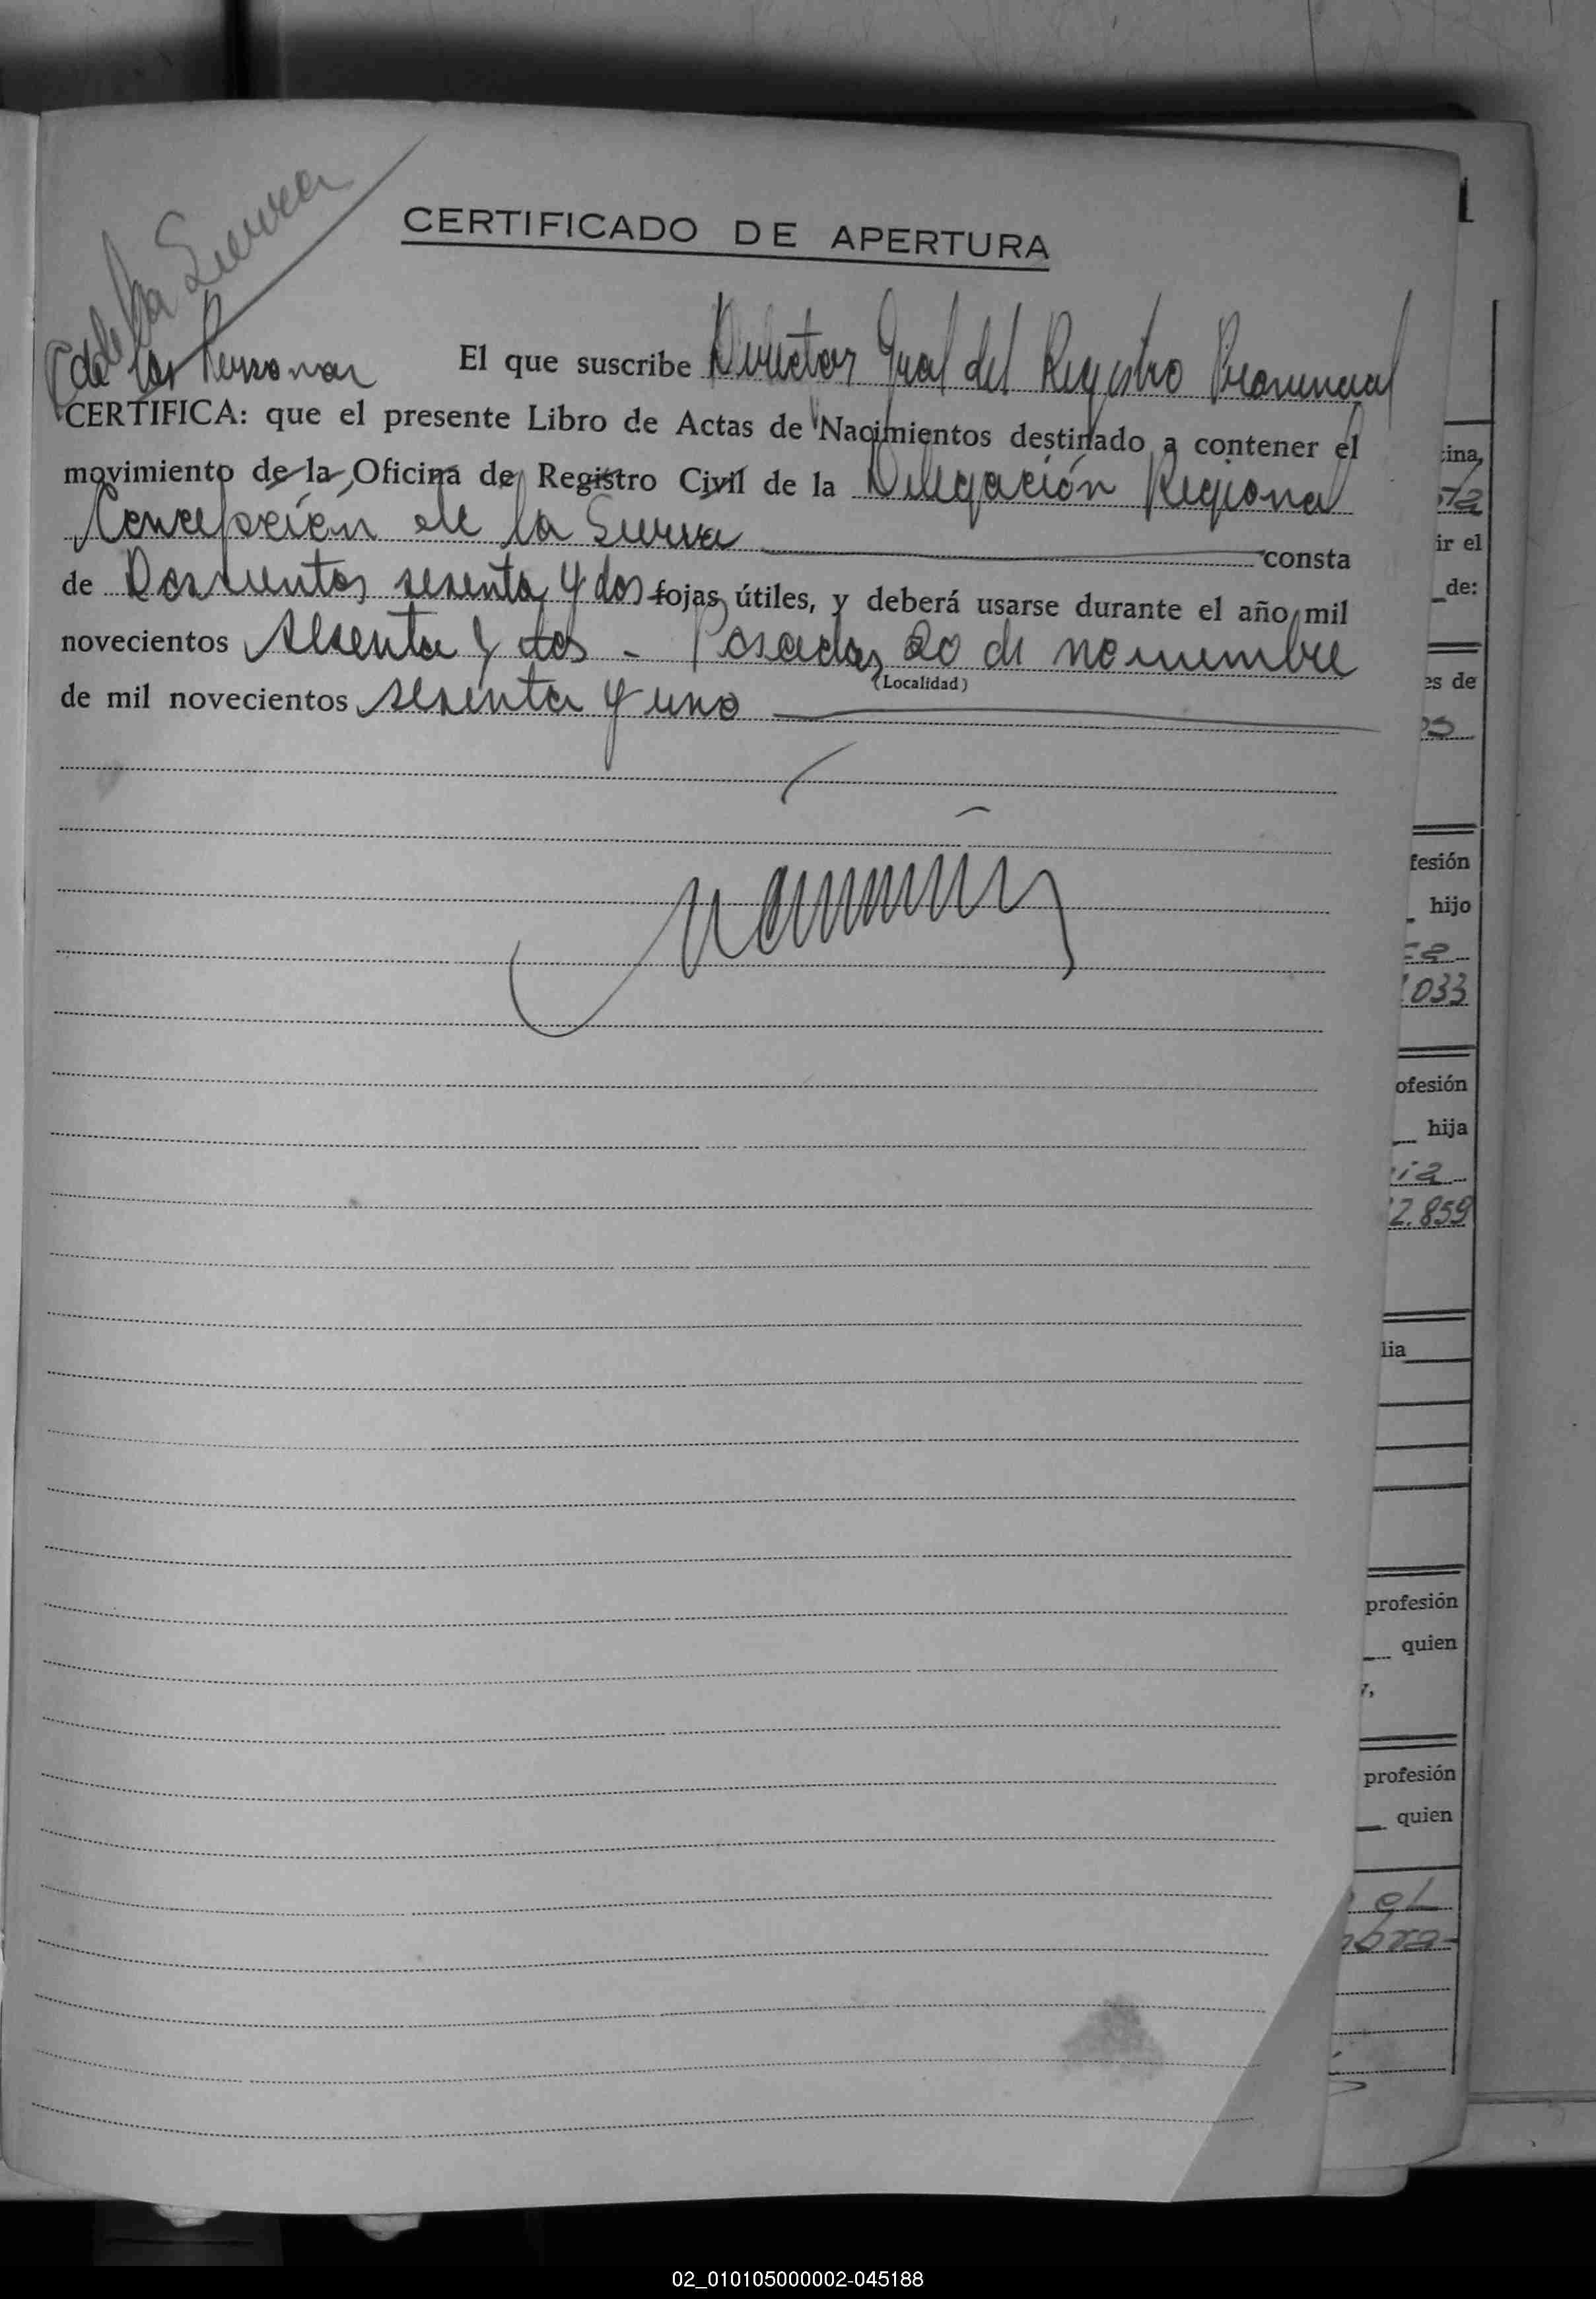 C. de la Sierra
CERTIFICADO DE APERTURA
El que suscribe Director Gral del Registro Provincial
de las Personas
CERTIFICA: que el presente Libro de Actas de Nacimientos destinado a contener el
movimiento de la Oficina de Registro Civil de la Delegación Regional
Concepción de la Sierra consta
de Doscientos sesenta y dos fojas útiles, y deberá usarse durante el año mil
novecientos sesenta y dos - Posadas, 20 de noviembre
(Localidad)
de mil novecientos sesenta y uno
cina,
ir el
de:
es de
os
fesión
hijo
033
ofesión
hija
ia
2.859
lia
profesión
quien
y,
profesión
quien
el
02_010105000002-045188